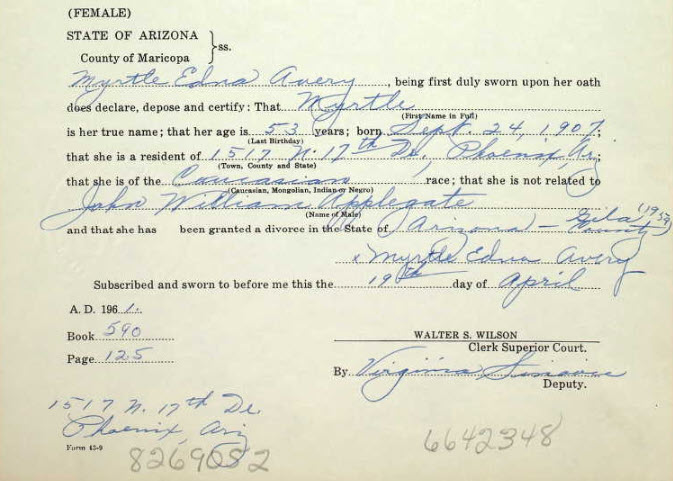 (FEMALE)
STATE OF ARIZONA
County of Maricopa } ss.
Myrtle Edna Avery, being first duly sworn upon her oath
does declare, depose and certify: That Myrtle
(First Name in Full)
is her true name; that her age is 53 years; born Sept. 24, 1907;
(Last Birthday)
that she is a resident of 1517 N. 17th Dr. Phoenix, Ariz;
(Town, County and State)
that she is of the Caucasian race; that she is not related to
(Caucasian, Mongolian, Indian or Negro)
John William Applegate
(Name of Male)
and that she has been granted a divorce in the State of Arizona - Gila County
Myrtle Edna Avery
Subscribed and sworn to before me this the 19th day of April
A. D. 1961.
Book 590
Page 125
WALTER S. WILSON
Clerk Superior Court.
By Virginia
Deputy.
1517 N. 17th Dr.
Phoenix, Ariz
Form 43-9
8269082
6642348